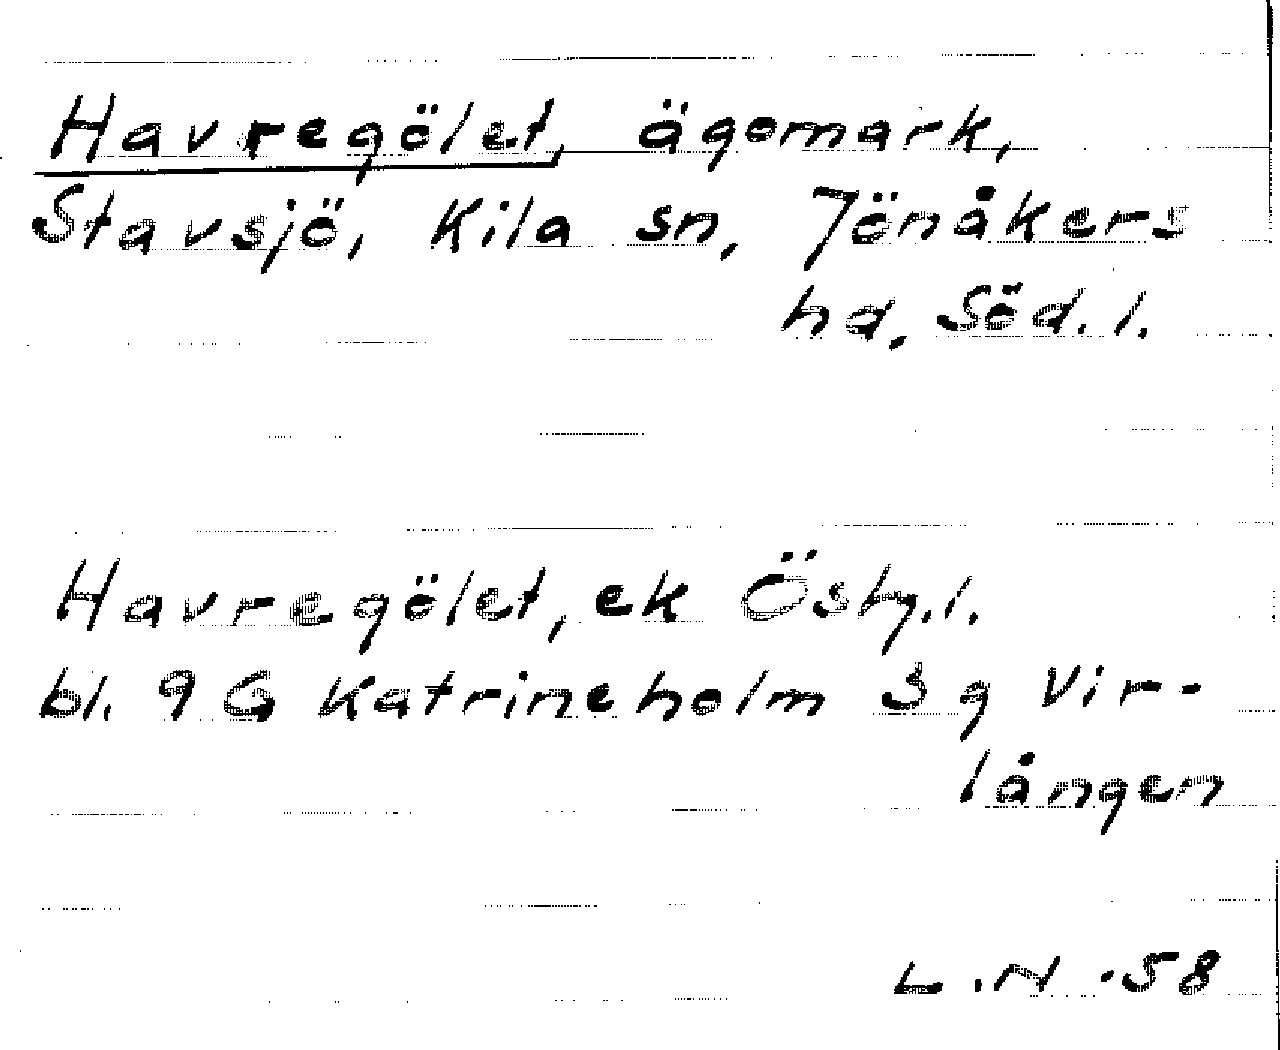 Havregölet, ägomark,
Stavsjö, Kila sn, Jönåkers
hd, Söd. l.
Havregölet, ek Östg. l.
bl. 9 G Katrineholm S g Vir-
lången
L. N. 58